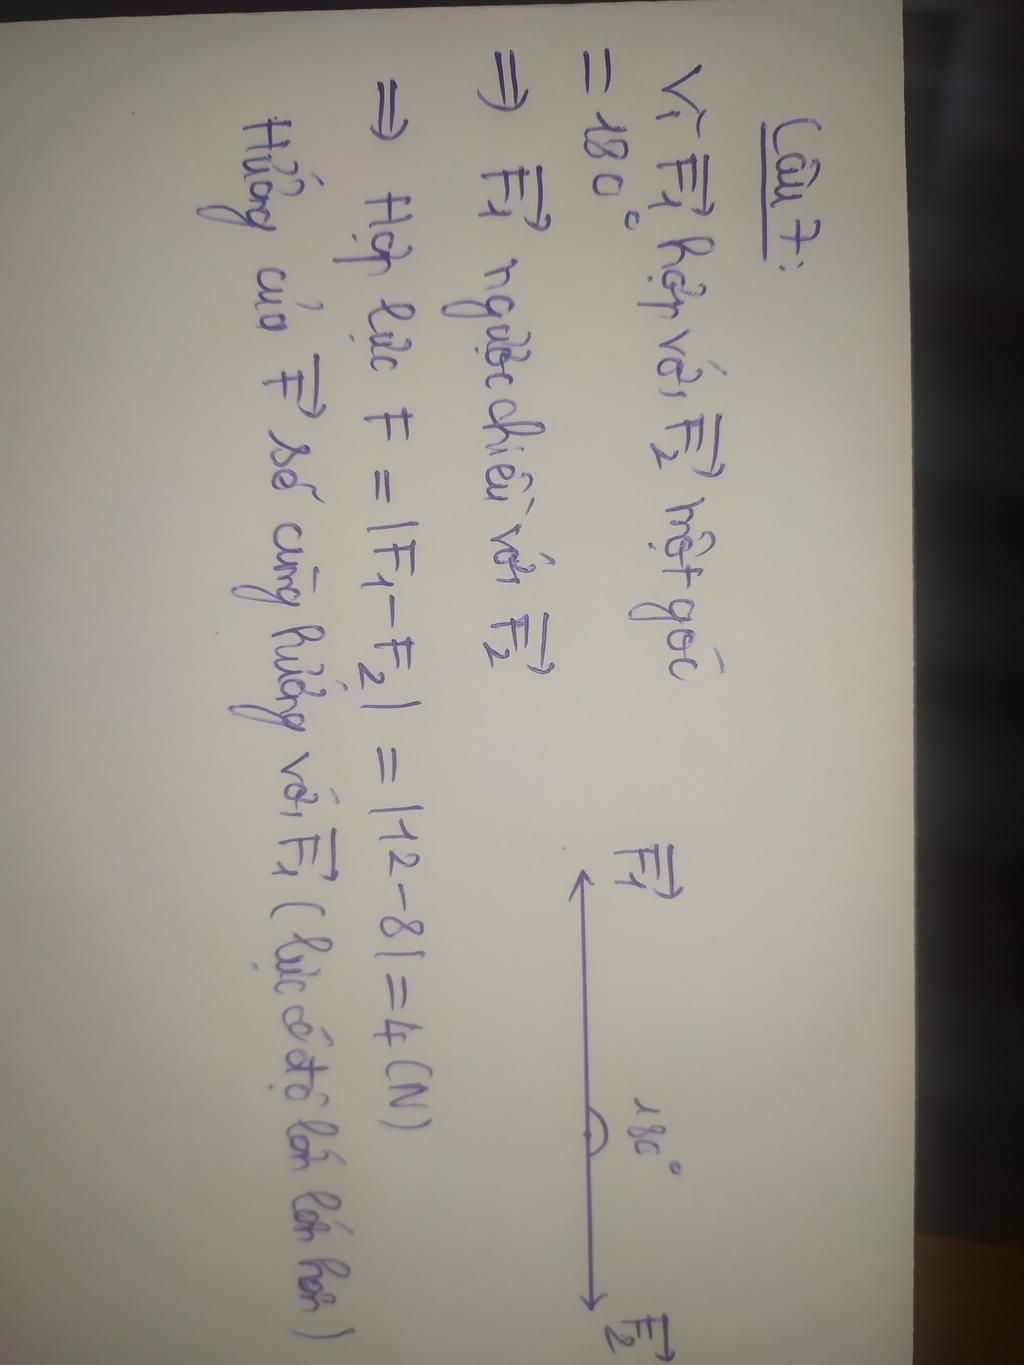 Câu 7:
Vì F₁→ hợp với F₂→ một góc
= 180°
F₁→ 180° F₂→
⇒ F₁→ ngược chiều với F₂→
⇒ Hợp lực F = |F₁ - F₂| = |12 - 8| = 4 (N)
Hướng của F→ sẽ cùng hướng với F₁→ (lực có độ lớn lớn hơn)